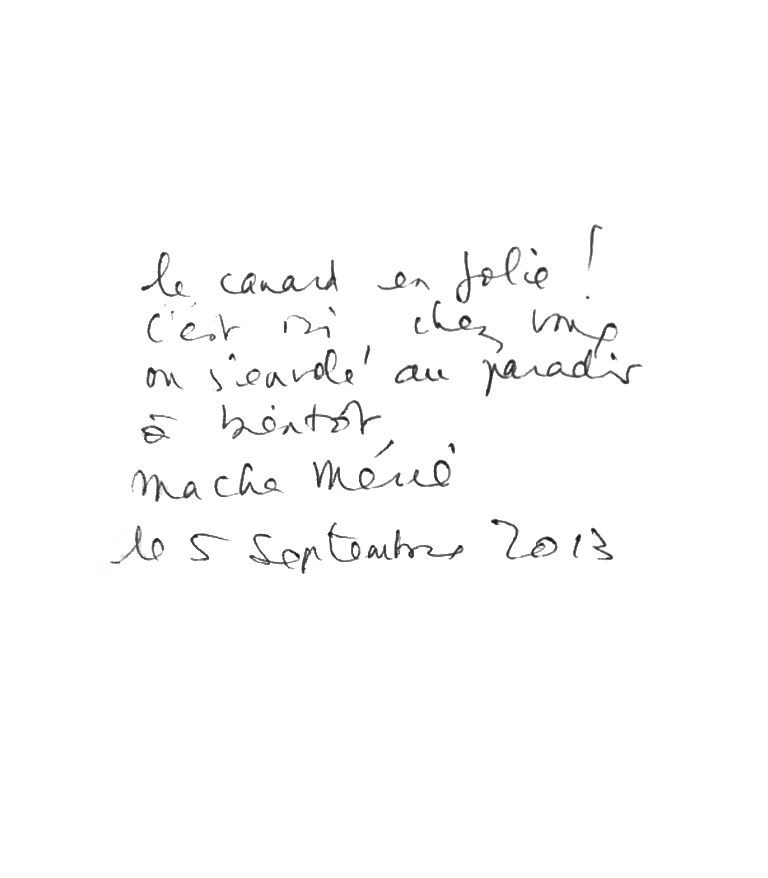 le canard en folie !
c'est ici chez vous
on s'envole au paradis
à bientôt
macha Méril
le 5 Septembre 2013